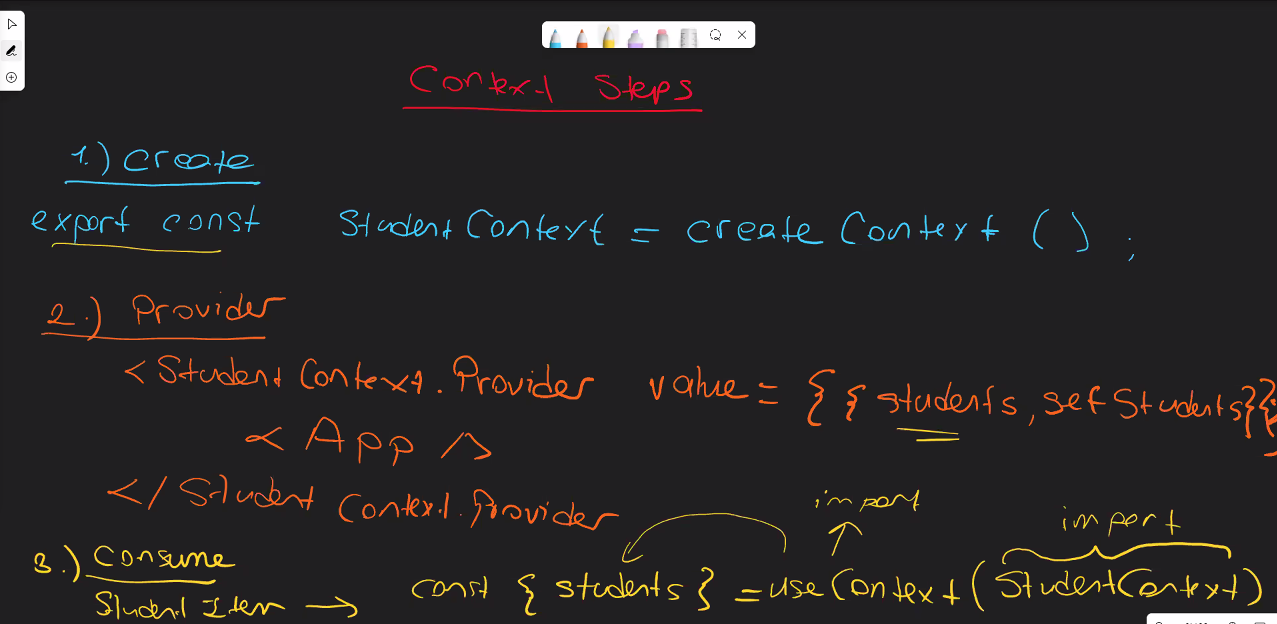 Context Steps
1.) Create
export const StudentContext = createContext () ;
2.) Provider
<StudentContext.Provider value = { { students, setStudents}}
<App />
</StudentContext.Provider
import
import
3.) Consume
const { students } = useContext (StudentContext)
StudentItem →